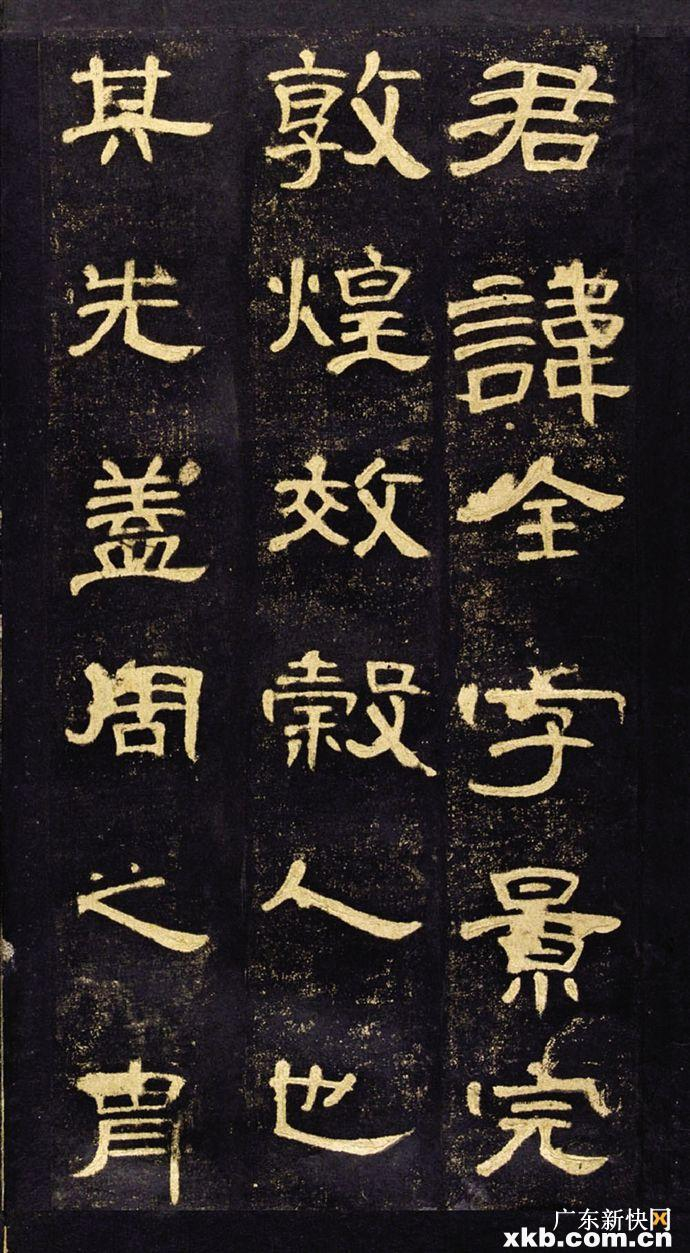 君諱全字景完
敦煌效穀人也
其先蓋周之胄
广东新快网
xkb.com.cn